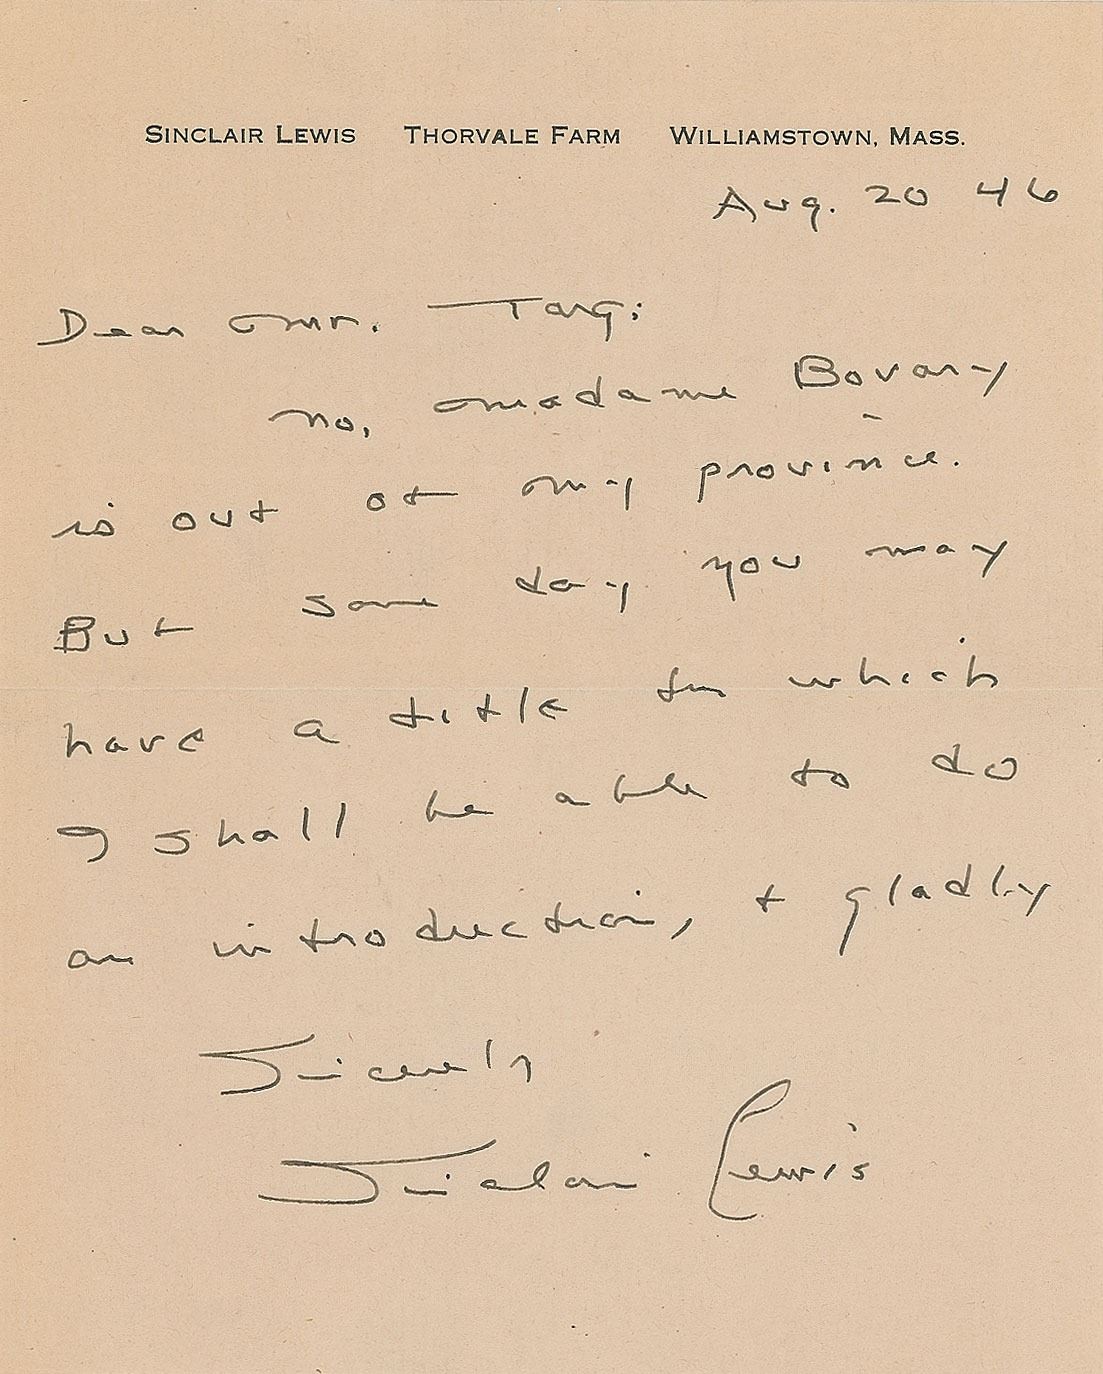 SINCLAIR LEWIS THORVALE FARM WILLIAMSTOWN, MASS.
Aug. 20 46
Dear Mr. Targ:
No, Madame Bovary
is out of my province.
But some day you may
have a title for which
I shall be able to do
an introduction, + gladly
Sincerely
Sinclair Lewis